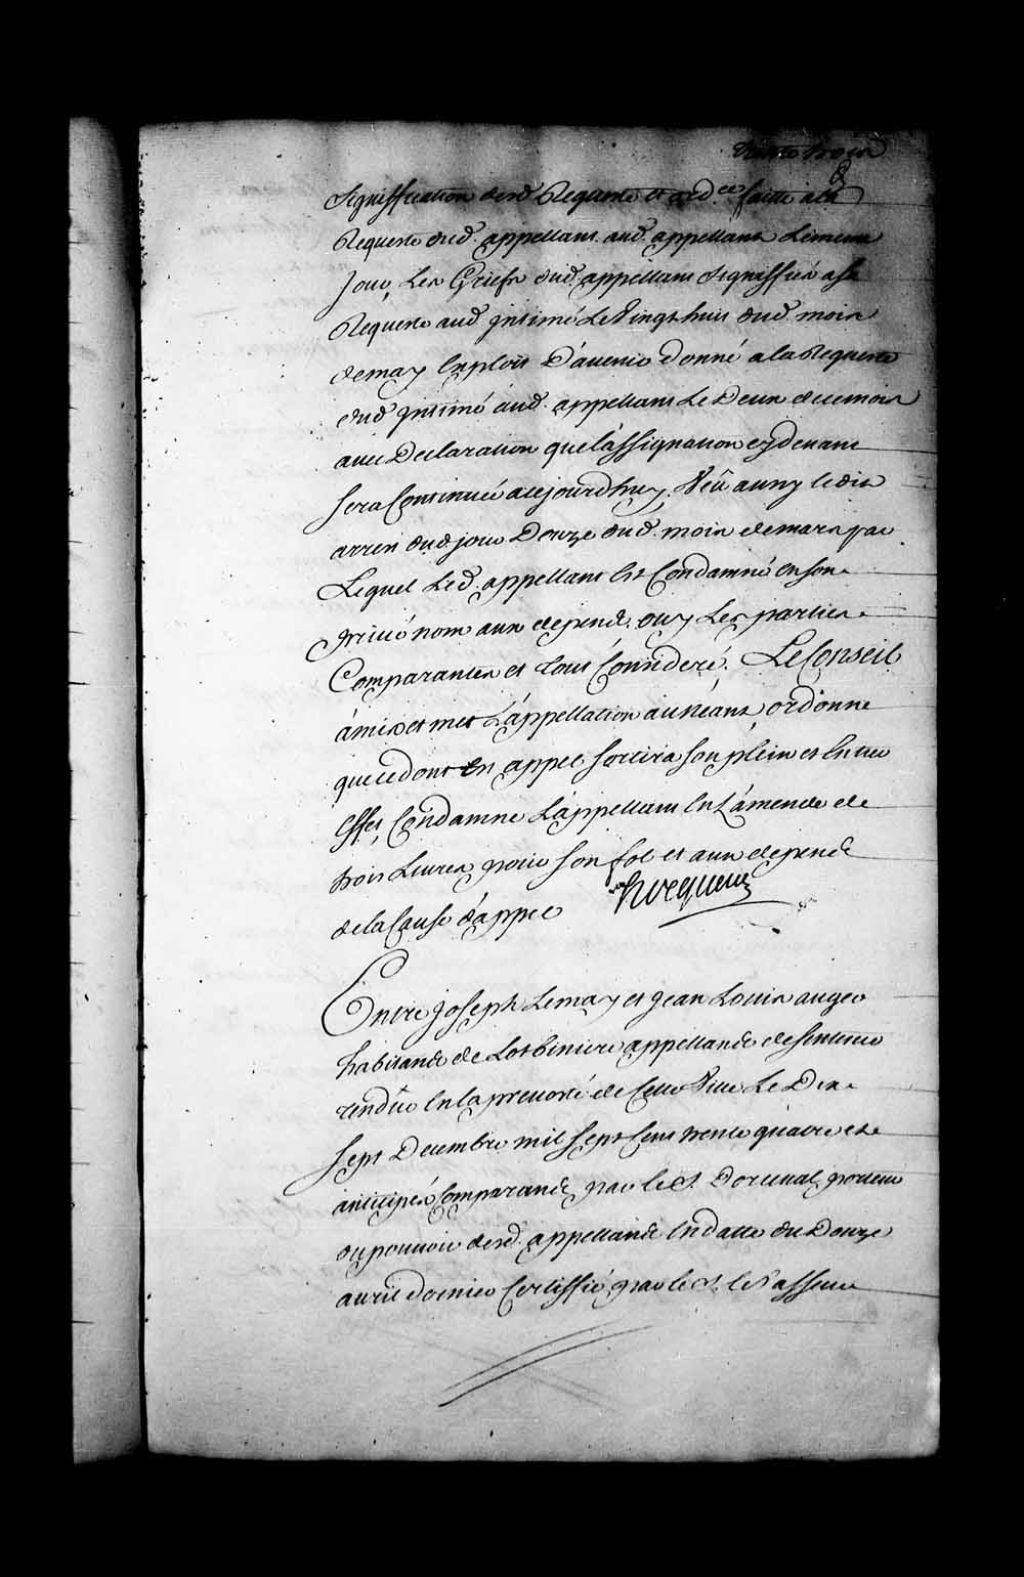 trente trois
Signiffication desd. Requeste et ord.ce faitte a la
Requeste dud. appellant aud. appellant Lememe
Jour, Les Griefs dud. appellant signiffiés a sa
Requeste aud. jntimé Le Vingt huit dud. mois
demay Exploit D'avenir donné a la Requeste
dud jntimé aud. appellant Le Deux de ce mois
avec Declaration que l'assignation cydevant
sera Continuée a cejourdhuy. Veu aussy le dit
arrest dud. jour Douze dud. mois demars par
Lequel Led. appellant Est Condamné en son
privé nom aux depends. ouy Les parties
Comparantes et tout Consideré. Le Conseil
a mis et met L'appellation au neant, ordonne
que ce dont Est appel sortira son plein et Entier
Effet, Condamne L'appellant En L'amende de
trois Livres pour son fol et aux depends
de la Cause d'appel hocquart
Entre Joseph Lemay et Jean Louis auger
habitands de Lotbiniere appellands de sentence
rendüe En la prevosté de Cette Ville Le Dix
sept Decembre mil sept Cent trente quatre et
anticipés Comparands par le S. Doreval porteur
du pouvoir desd. appellands En datte du Douze
avril dernier Certiffié par le S. le Vasseur